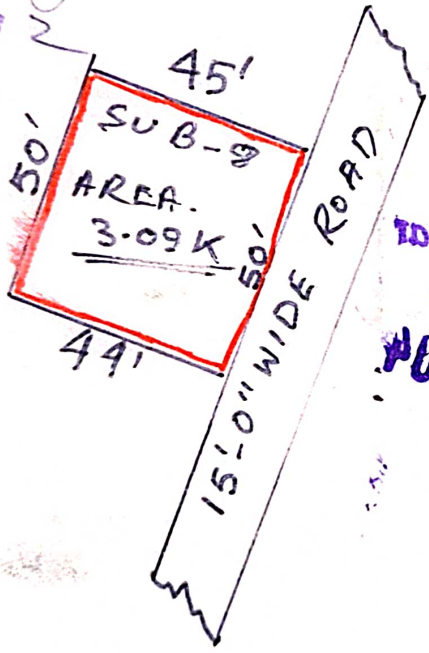 2
45'
SUB-8
50'
AREA.
3.09K
50'
44'
15'-0" WIDE ROAD